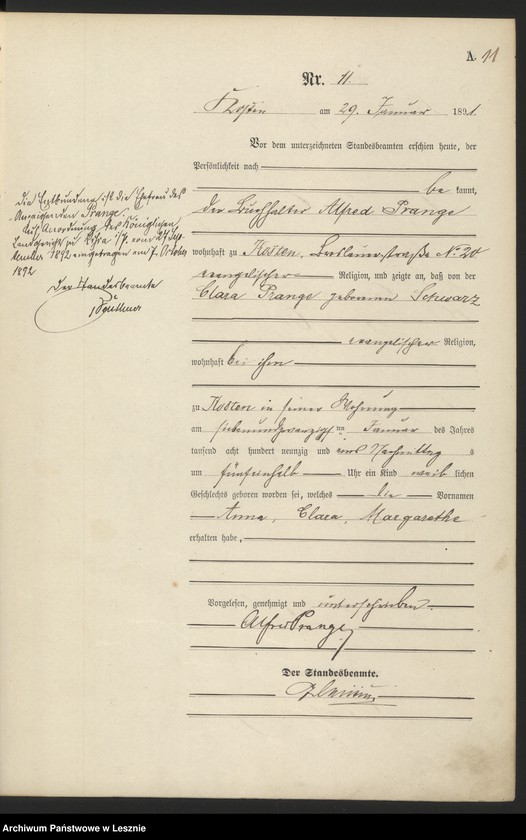 A. 11
Nr. 11
Kosten am 29. Januar 1891.
Vor dem unterzeichneten Standesbeamten erschien heute, der
Persönlichkeit nach
be kannt,
der Buchhalter Alfred Prange
wohnhaft zu Kosten, Breslauerstraße No 20
evangelischer Religion, und zeigte an, daß von der
Clara Prange geborenen Schwarz
evangelischer Religion,
wohnhaft bei ihm
zu Kosten in seiner Wohnung
am siebenundzwanzigsten Januar des Jahres
tausend acht hundert neunzig und eins Nachmittags
um fünfeinhalb Uhr ein Kind weib lichen
Geschlechts geboren worden sei, welches die Vornamen
Anna, Clara, Margarethe
erhalten habe,
Vorgelesen, genehmigt und unterschrieben
Alfred Prange
Der Standesbeamte.
die Entbundene ist die Ehefrau des
Anzeigenden Prange.
Auf Anordnung des Königlichen
Landgerichts zu Lissa i/P. vom 27 Sep
tember 1892 eingetragen am 7. October
1892
Der Standesbeamte
Archiwum Państwowe w Lesznie